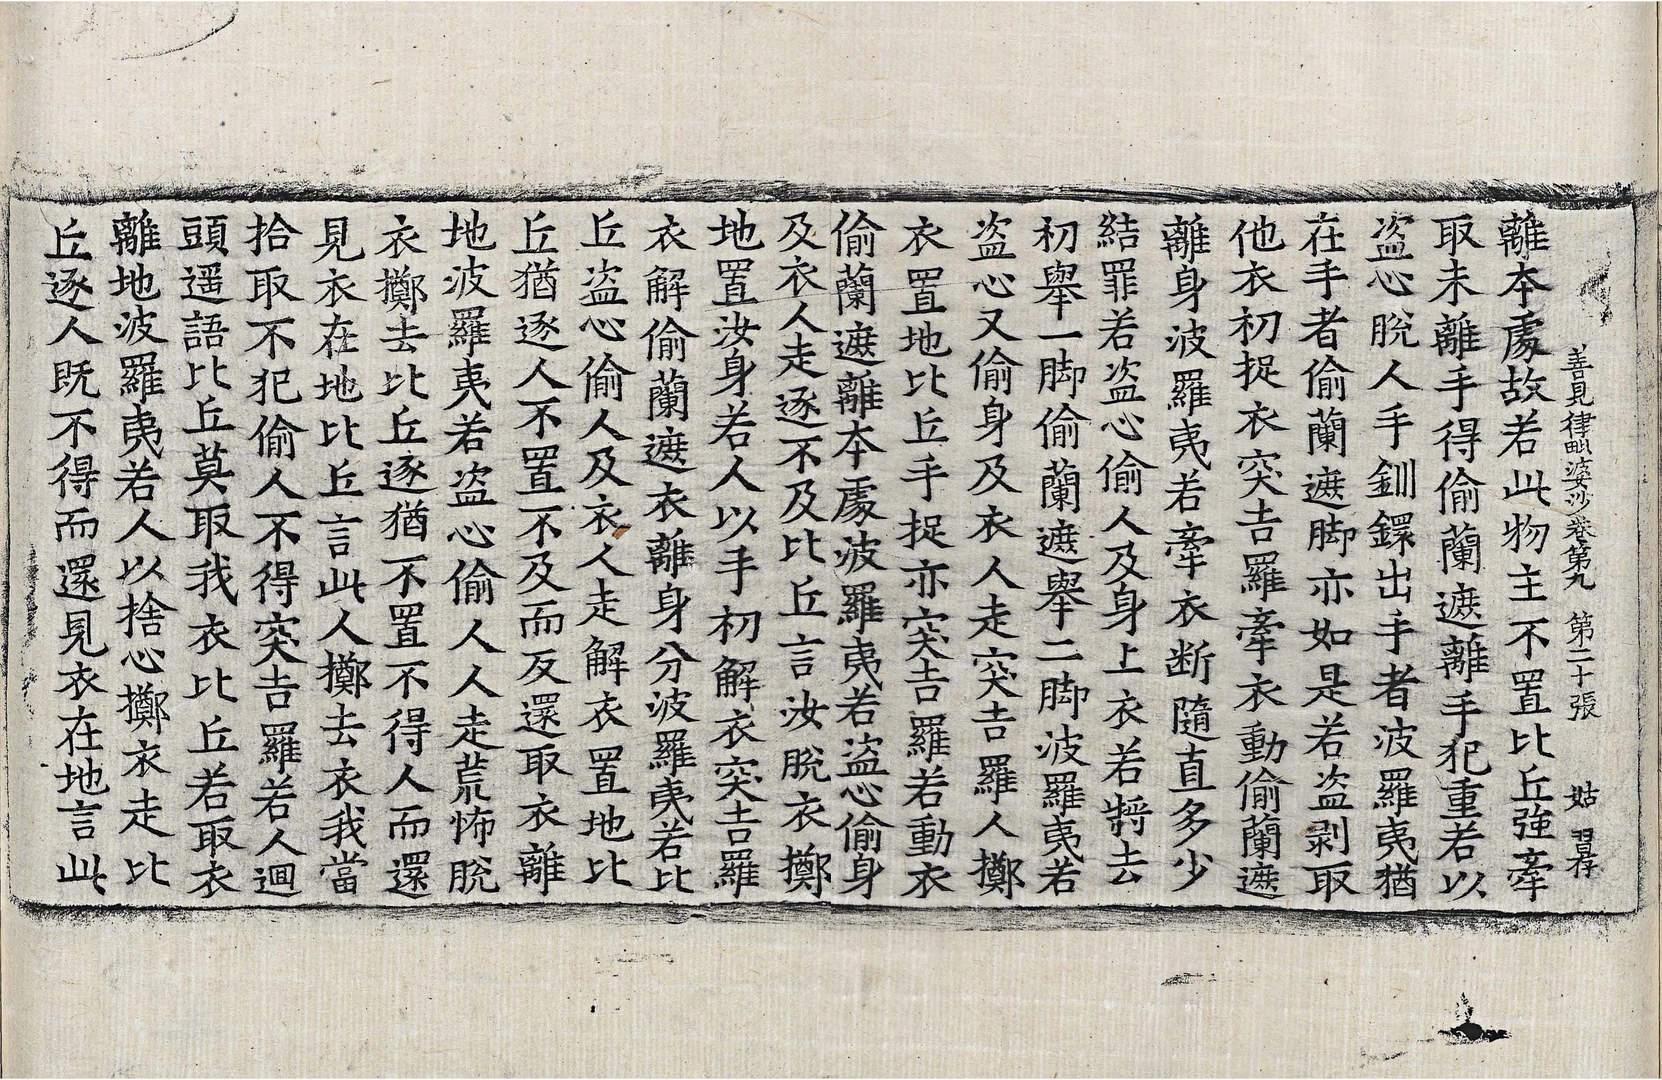 善見律毗婆沙卷第九 第二十張 姑
離本處故若此物主不置比丘強牽
取未離手得偷蘭遮離手犯重若以
盜心脫人手釧鐶出手者波羅夷猶
在手者偷蘭遮脚亦如是若盜剥取
他衣初捉衣突吉羅牽衣動偷蘭遮
離身波羅夷若牽衣断隨直多少
結罪若盜心偷人及身上衣若將去
初舉一脚偷蘭遮舉二脚波羅夷若
盜心又偷身及衣人走突吉羅人擲
衣置地比丘手捉亦突吉羅若動衣
偷蘭遮離本處波羅夷若盜心偷身
及衣人走逐不及比丘言汝脫衣擲
地置汝身若人以手初解衣突吉羅
衣解偷蘭遮衣離身分波羅夷若比
丘盜心偷人及衣人走解衣置地比
丘猶逐人不置不及而反還取衣離
地波羅夷若盜心偷人人走荒怖脫
衣擲去比丘逐猶不置不得人而還
見衣在地比丘言此人擲去衣我當
拾取不犯偷人不得突吉羅若人迴
頭遥語比丘莫取我衣比丘若取衣
離地波羅夷若人以捨心擲衣走比
丘逐人既不得而還見衣在地言此